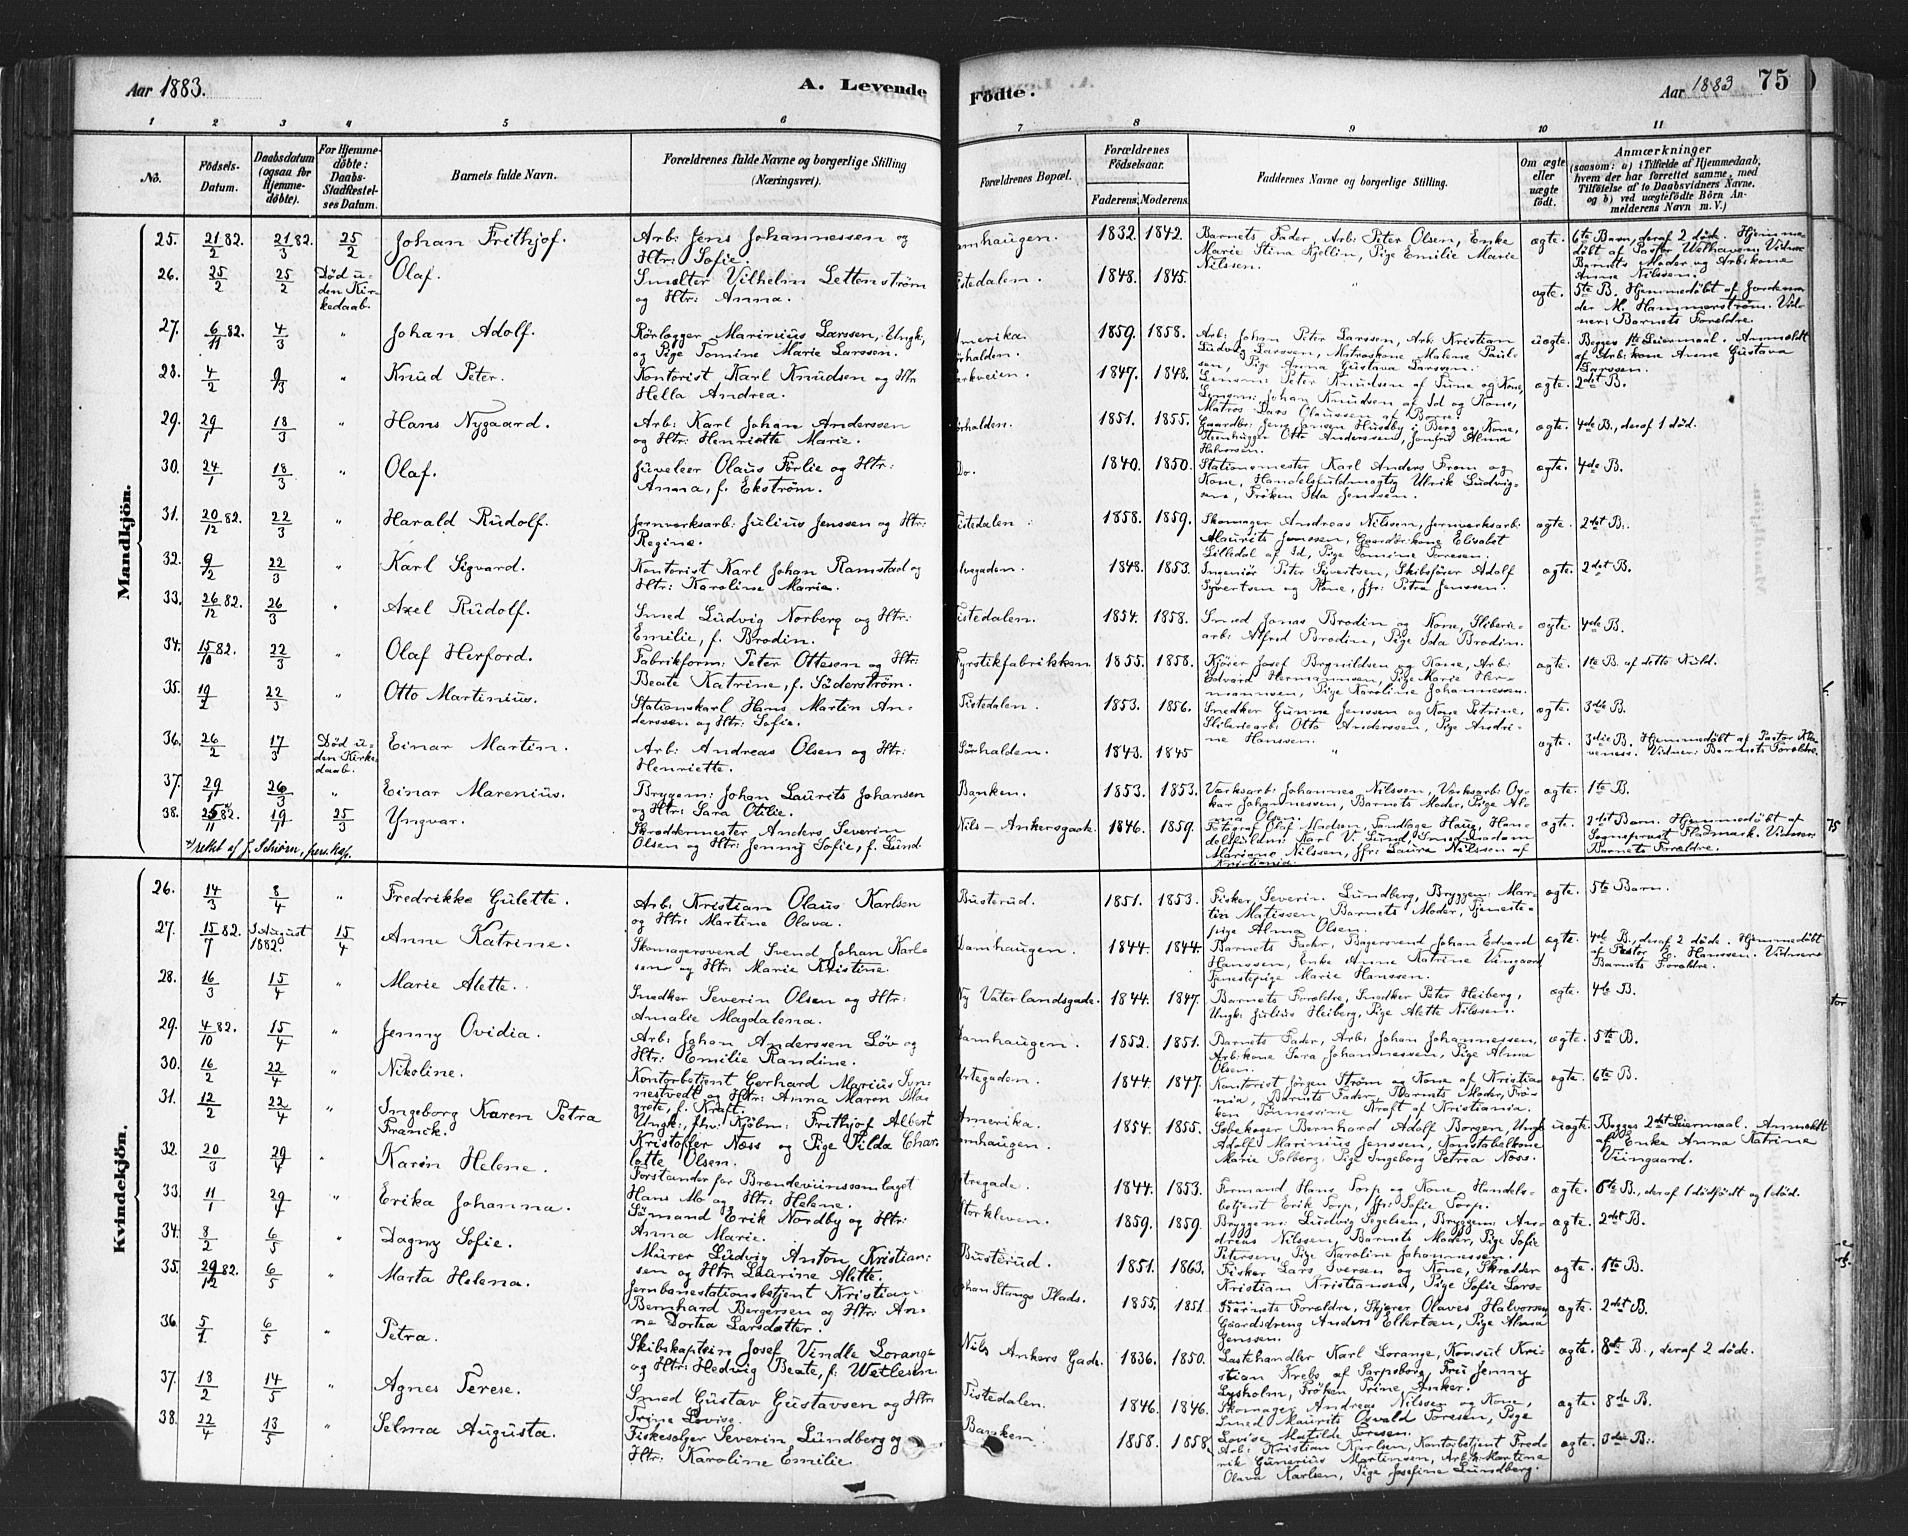 Aar 1883.
A. Levende
Födte.
Aar 1883
75
1 2 3 4 5 6 7 8 9 10 11
No.
Födsels-Datum.
Daabsdatum (ogsaa for Hjemme-döbte).
For Hjemme-döbte: Daabs-Stadfæstelses Datum.
Barnets fulde Navn.
Forældrenes fulde Navne og borgerlige Stilling (Næringsvei).
Forældrenes Bopæl.
Forældrenes Födselsaar.
Faderens. Moderens.
Faddernes Navne og borgerlige Stilling.
Om ægte eller uægte födt.
Anmærkninger
(saasom: a) i Tilfælde af Hjemmedaab, hvem der har forrettet samme, med Tilföielse af to Daabsvidners Navne, og b) ved uægtefödte Börn Anmelderens Navn m. V.)
Mandkjön.
25. 21/2 82. 21/3 82. 25/2 Johan Frithjof. Arb: Jens Johannessen og Htr: Sofie. Damhaugen. 1832. 1842. Barnets Fader, Arb: Peter Olsen, Enke Marie Stina Kjellin, Pige Emilie Marie Nilssen. ægte. 6te Barn, deraf 2 döde. Hjemmedöbt af Pastor Welhaven. Vidner Barnets Moder og Arb:kone Anne Nilssen.
26. 25/2 25/2 Död uden Kirkedaab. Olaf. Smelter Vilhelm Lettenström og Htr: Anna. Tistedalen. 1848. 1845. " ægte. 5te B. Hjemmedöbt af Jordemoder M. Hammerström. Vidner: Barnets Forældre.
27. 6/11 82. 4/3 " Johan Adolf. Rörlægger Marinius Larssen, Ungk, og Pige Tomine Marie Larssen. Amerika. Sörhalden. 1859. 1858. Arb: Johan Peter Larssen, Arb: Kristian Ludvig Larssen, Matroskone Malene Paulsen, Pige Anna Gustava Larssen. uægte. Begges 1te Leiermaal. Anmeldt af Arb:kone Anne Gustava Larssen.
28. 4/2 9/3 " Knud Peter. Kontorist Karl Knudsen og Htr Hella Andrea. Parkveien. 1847. 1848. Lensm: Peter Knudsen af Tune og Kone, Lensm: Johan Knudsen af Id og Kone, Matros Lars Claussen af Borre. ægte. 2det B.
29. 29/1 18/3 " Hans Nygaard. Arb: Karl Johan Anderssen og Htr: Henriette Marie. Sörhalden. 1851. 1855. Gaardbr: Jens Jensen Husdby i Berg og Kone, Stenhugger Otto Anderssen, Jomfru Alma Halvorsen. ægte. 4de B., deraf 1 död.
30. 24/1 18/3 " Olaf. Juveleer Olaus Förlie og Htr: Anna, f. Ekström. Do. 1840. 1850. Stationsmester Karl Anders From og Kone, Handelsfuldmægtig Ulrik Ludvigsen, Fröken Ida Jenssen. ægte. 4de B.
31. 20/12 82. 22/3 " Harald Rudolf. Jernverksarb: Julius Jenssen og Htr: Regine. Tistedalen. 1858. 1859. Skomager Andreas Nilssen, Jernverksarb: Maurits Jenssen, Gaardbr:kone Elisabet Lilledal af Id, Pige Tomine Toresen. ægte. 2det B.
32. 9/2 22/3 " Karl Sigvard. Kontorist Karl Johan Ramstad og Htr: Karoline Marie. Elvegaden. 1848. 1853. Ingeniör Peter Syvertsen, Skibsförer Adolf Syvertsen og Kone, Jfr: Petra Jenssen. ægte. 2det B.
33. 26/12 82. 26/3 " Axel Rudolf. Smed Ludvig Norberg og Htr: Emilie, f. Brodin. Tistedalen. 1854. 1858. Smed Jonas Brodin og Kone, Sliberiearb: Alfred Brodin, Pige Ida Brodin. ægte. 4de B.
34. 15/10 82. 22/3 " Olaf Herford. Fabrikform: Peter Ottesen og Htr: Beate Katrine, f. Söderström. Fyrstikfabrikken 1855. 1858. Kjörer Josef Brynildsen og Kone, Arb: Edvard Hermannsen, Pige Marie Hermannsen, Pige Karoline Johannessen. ægte. 1te B. af dette Kuld.
35. 19/2 22/3 " Otto Martinius. Stationskarl Hans Martin Anderssen og Htr: Sofie. Tistedalen. 1853. 1856. Snedker Gunne Jenssen og Kone Petrine, Sliberiearb: Otto Anderssen, Pige Andrine Hanssen. ægte. 3die B.
36. 26/2 17/3 Död uden Kirkedaab. Einar Martin. Arb: Andreas Olsen og Htr: Henriette. Sörhalden. 1843. 1845 " ægte. 3die B. Hjemmedöbt af Pastor Steveness. Vidner: Barnets Forældre.
37. 29/1 26/3 " Einar Marenius. Bryggem: Johan Laurits Johansen og Htr: Sara Otilie. Banken. 1853. 1853. Værksarb: Johannes Nilssen, Værksarb: Oskar Johannessen, Barnets Moder, Pige Alma Olsen. ægte. 1te B.
38. 25/11 82. 19/1 25/3 Yngvar. Skreddermester Anders Severin Olsen og Htr: Jenny Sofie, f. Lund. Nils-Ankersgade. 1846. 1859. Fotograf Olaf Madsen Tandlage Haug, Handelsfuldm: Karl V. Lund, Smedmadam Mariane Nilssen, Jfr: Laura Nilssen af Kristiania. ægte. 2det Barn. Hjemmedöbt af Sognepræst Flödmark. Vidner: Barnets Forældre.
rettet af J. Schiörn, pers. kap.
Kvindekjön.
26. 14/3 8/4 " Fredrikke Gulette. Arb: Kristian Olaus Karlsen og Htr: Martine Olava. Busterud. 1851. 1853. Fisker Severin Lundberg, Bryggem: Martin Matissen, Barnets Moder, Tjenestepige Alma Olsen. ægte. 5te Barn.
27. 15/7 82. 3 August 1882. 15/4 Anne Katrine. Skomagersvend Svend Johan Karlsen og Htr: Marie Kristine. Damhaugen. 1844. 1844. Barnets Fader, Bagersvend Johan Edvard Hanssen, Enke Anne Katrine Viingaard, Tjenestepige Marie Hanssen. ægte. 4de B., deraf 2 döde. Hjemmedöbt af Pastor E. Hanssen. Vidner: Barnets Forældre.
28. 16/3 15/4 " Marie Alette. Snedker Severin Olsen og Htr: Amalie Magdalena. Ny Vaterlandsgade. 1844. 1847. Barnets Forældre, Snedker Peter Heiberg, Ungk: Julius Heiberg, Pige Alette Nilssen. ægte. 4de B.
29. 4/10 82. 15/4 " Jenny Ovidia. Arb: Johan Anderssen Löv og Htr: Emilie Randine. Damhaugen. 1852. 1851. Barnets Fader, Arb: Johan Johannessen, Arb:kone Sara Johannessen, Pige Alma Olsen. ægte. 5te B.
30. 16/2 22/4 " Nikoline. Kontorbetjent Gerhard Marius Tynnestvedt og Htr: Anna Maren Margrete, f. Kraft. Urtegaden. 1844. 1847. Kontorist Jörgen Ström og Kone af Kristiania, Barnets Fader, Barnets Moder, Fröken Tönnessine Kraft af Kristiania. ægte. 6te B.
31. 12/2 22/4 " Ingeborg Karen Petra Franik. Ungk:, fhv: Kjöbm: Frithjof Albert Kristoffer Næss og Pige Tilda Charlotte Olsen. Amerika. Damhaugen. 1854. 1855. Söbekoger Bernhard Adolf Borgen, Ungk Adolf Marinius Jenssen, Konstabelkone Marie Solberg, Pige Ingeborg Petrea Næss. uægte. Begges 2det Leiermaal. Anmeldt af Enke Anna Katrine Viingaard.
32. 20/3 29/4 " Karen Helene. Forstander for Brændeviinssamlaget Hans Mo og Htr: Helene. Östregade. 1844. 1853. Formand Hans Torp og Kone, Handelsbetjent Erik Torp, Jfr: Sofie Torp. ægte. 6te B., deraf 1 dödfödt og 1 död.
33. 11/1 29/4 " Erika Johanna. Sömand Erik Nordby og Htr: Anna Marie. Storkleven. 1859. 1859. Bryggem: Ludvig Segelsen, Bryggem: Andreas Nilssen, Barnets Moder, Pige Sofie Petersen, Pige Karoline Johannessen. ægte. 2det B.
34. 8/2 6/5 " Dagny Sofie. Murer Ludvig Anton Kristiansen og Htr: Laurine Alette. Busterud. 1851. 1863. Fisker Lars Iversen og Kone, Skrædder Kristian Kristiansen, Pige Sofie Larssen. ægte. 1te B.
35. 29/12 82. 6/5 " Marta Helena. Jernbanestationsbetjent Kristian Bernhard Bergersen og Htr: Anne Dortea Larsdatter. Johan Stangs Plads. 1855. 1851. Barnets Forældre, Skjærer Olaves Halvorsen, Gaardsdreng Anders Ellertæn, Pige Alma Jenssen. ægte. 2det B.
36. 5/1 6/5 " Petra. Skibskaptein Josef Vindle Lorange og Htr: Hedvig Beate, f: Wetlesen. Nils Ankers Gade. 1836. 1850. Lastehandler Karl Lorange, Konsul Kristian Krebs af Sarpsborg, Fru Jenny Lysholm, Fröken Trine Anker. ægte. 8de B., deraf 2 döde.
37. 18/2 14/5 " Agnes Terese. Smed Gustav Gustavsen og Htr: Trine Lovise. Tistedalen. 1846. 1846. Skomager Andreas Nilssen og Kone, Smed Maurits Osvald Toresen, Pige Lovise Matilde Toresen. ægte. 8de B.
38. 22/4 13/5 " Selma Augusta. Fiskesælger Severin Lundberg og Htr: Karoline Emilie. Banken. 1858. 1858. Arb: Kristian Karlsen, Kontorbetjent Fredrik Gunerius Martinsen, Arb:k: Martine Olava Karlsen, Pige Josefine Lundberg. ægte. 3die B.